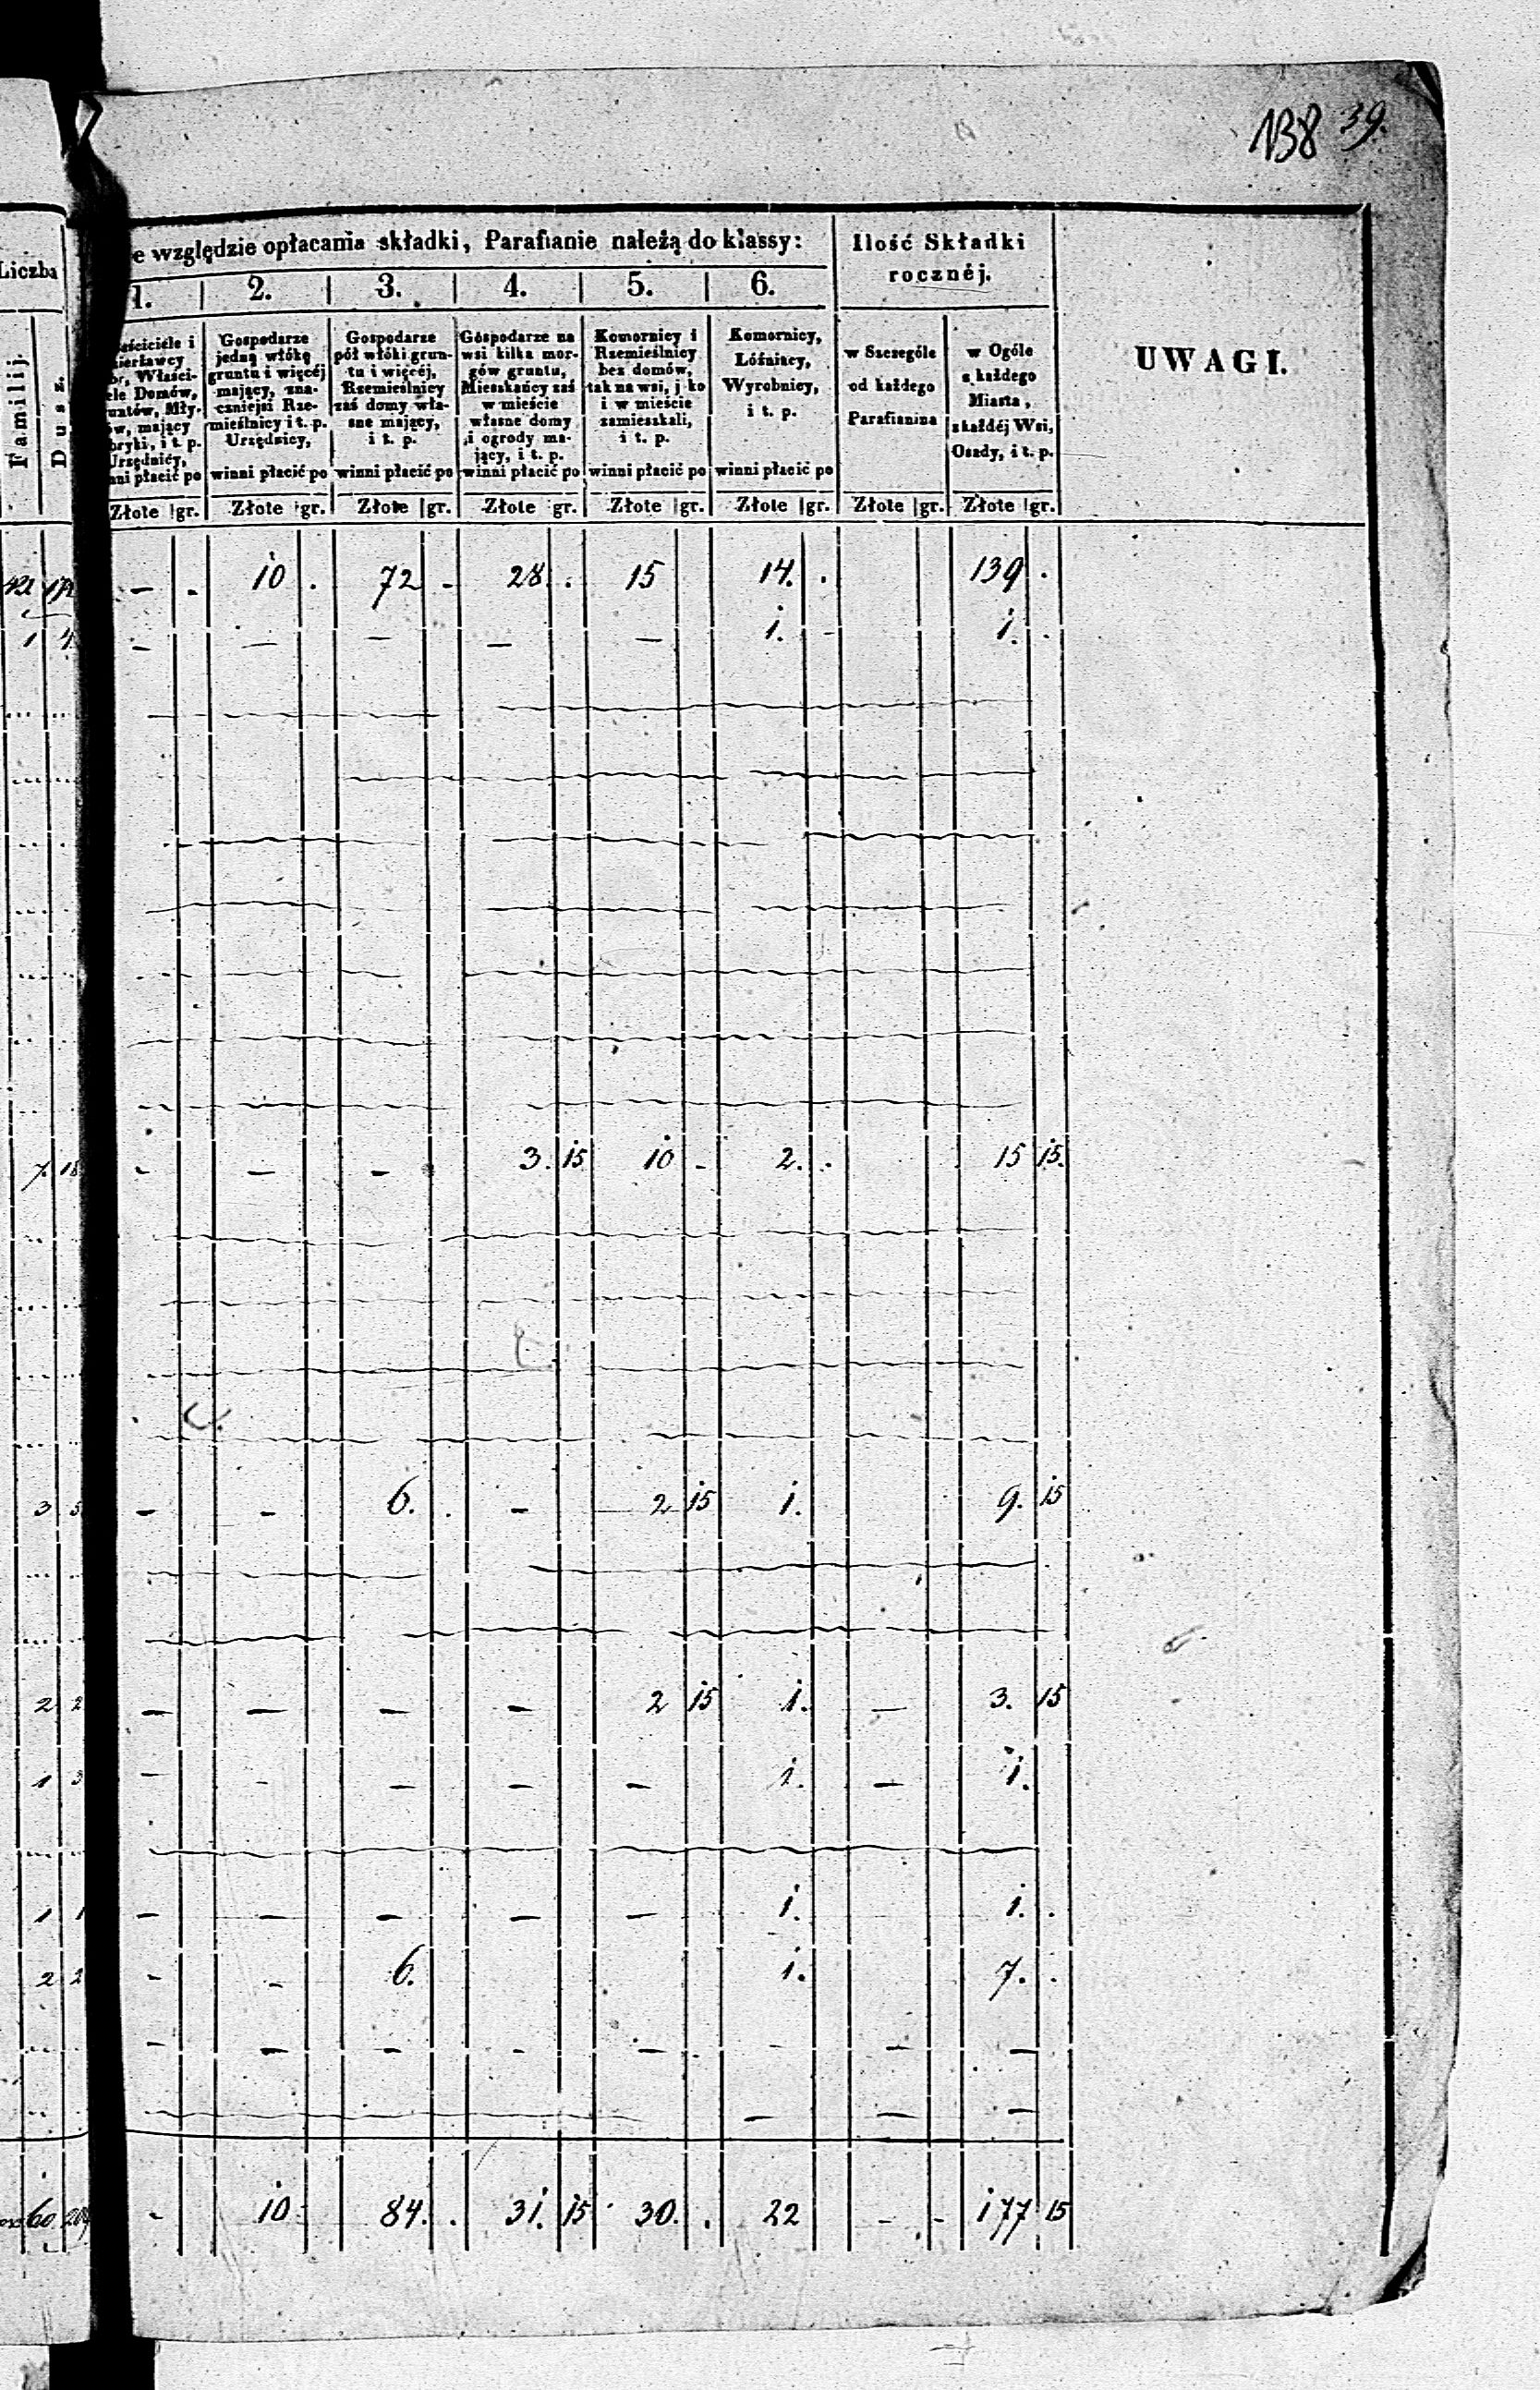 138 39.
Liczba
e względzie opłacania składki, Parafianie należą do klassy:
Ilość Składki
rocznéj.
1. 2. 3. 4. 5. 6.
Familij
Dusz.
Gospodarze
jedną włókę
gruntu i więcéj
mający, zna-
czniejsi Rze-
mieślnicy i t. p.
Urzędnicy,
winni płacić po
Gospodarze
pół włóki grun-
tu i więcéj,
Rzemieślnicy
zaś domy wła-
sne mający,
i t. p.
winni płacić po
Gospodarze na
wsi kilka mor-
gów gruntu,
Mieszkańcy zaś
w mieście
własne domy
i ogrody ma-
jący, i t. p.
winni płacić po
Komornicy i
Rzemieślnicy
bez domów,
tak na wsi, j ko
i w mieście
zamieszkali,
i t. p.
winni płacić po
Komornicy,
Lóźnicy,
Wyrobnicy,
i t. p.
winni płacić po
w Szczególe
od każdego
Parafianina
w Ogóle
z każdego
Miasta,
z każdéj Wsi,
Osady, i t. p.
UWAGI.
Złote gr. Złote gr. Złote gr. Złote gr. Złote gr. Złote gr. Złote gr. Złote gr.
— . 10 . 72 - 28 . 15 14. . 139 .
1 4 — — — — — 1. - 1. .
7. 18 - — — . 3. 15 10 - 2. . 15 15.
3 5 — — 6. . — 2 15 1. 9. 15
2 2 — — — — 2 15 1. — 3. 15
1 3 — - — — — 1. — 1.
1 1 — — — — — 1. 1. .
2 2 - - 6. 1. 7. .
- — — - — - — —
— — —
60 209 - 10 84. . 31. 15 30. . 22 - - 177 15